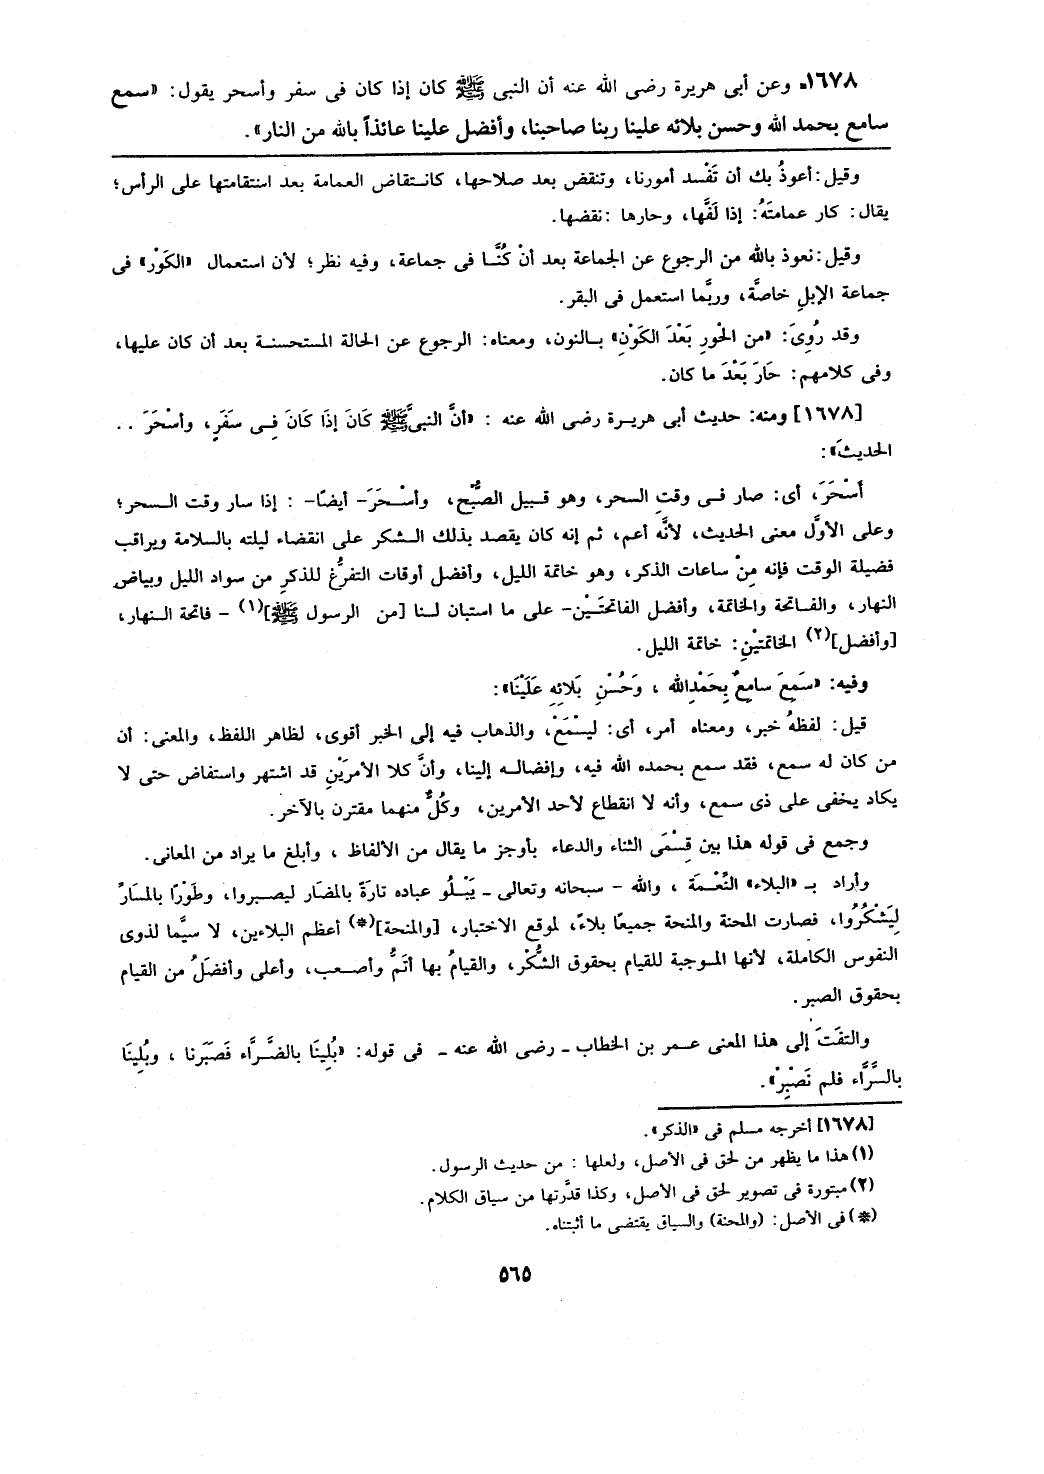 ١٦٧٨ـ وعن أبى هريرة رضى الله عنه أن النبى ﷺ كان إذا كان فى سفر وأسحر يقول: «سمع
سامع بحمد الله وحسن بلائه علينا ربنا صاحبنا، وأفضل علينا عائذاً بالله من النار».
وقيل: أعوذُ بك أن تَفْسد أمورنا، وتنقض بعد صلاحها، كانتقاض العمامة بعد استقامتها على الرأس؛
يقال: كار عمامتَهُ: إذا لَفَّها، وحارها: نقضها.
وقيل: نعوذ بالله من الرجوع عن الجماعة بعد أنْ كُنَّا فى جماعة، وفيه نظر؛ لأن استعمال «الكَوْر» فى
جماعة الإبلِ خاصَّة، وربَّما استعمل فى البقر.
وقد رُوِىَ: «من الحْورِ بَعْدَ الكَوْنِ» بالنون، ومعناه: الرجوع عن الحالة المستحسنة بعد أن كان عليها،
وفى كلامهم: حَارَ بَعْدَ ما كان.
[١٦٧٨] ومنه: حديث أبى هريرة رضى الله عنه : «أنَّ النبىَّ ﷺ كَانَ إذَا كَانَ فِى سَفَرٍ، وأسْحَرَ . .
الحديثَ»:
أَسْحَرَ، أى: صار فى وقتِ السحر، وهو قبيل الصُّبْح، وأسْحَرَ- أيضًا- : إذا سار وقت السحر؛
وعلى الأوَّل معنى الحديث، لأنَّه أعم، ثم إنه كان يقصد بذلك الشكر على انقضاء ليلته بالسلامة ويراقب
فضيلة الوقت فإنه مِنْ ساعات الذكر، وهو خاتمة الليل، وأفضل أوقات التفرغُّ للذكرِ من سواد الليل وبياض
النهار، والفاتحة والخاتمة، وأفضل الفاتحتَيْن- على ما استبان لنا [من الرسول ﷺ](١) - فاتحة النهار،
[وأفضل](٢) الخاتمتيْنِ: خاتمة الليل.
وفيه: «سَمِعَ سامِعٌ بِحَمْدِالله ، وَحُسْنِ بَلائِهِ عَلَيْنَا»:
قيل: لفظهُ خبر، ومعناه أمر، أى: ليسْمَعْ، والذهاب فيه إلى الخبر أقوى، لظاهر اللفظ، والمعنى: أن
من كان له سمع، فقد سمع بحمده الله فيه، وإفضاله إلينا، وأنَّ كلا الأمريْنِ قد اشتهر واستفاض حتى لا
يكاد يخفى على ذى سمع، وأنه لا انقطاع لأحد الأمرين، وكُلٌّ منهما مقترن بالآخر.
وجمع فى قوله هذا بين قِسْمَى الثناء والدعاء بأوجز ما يقال من الألفاظ ، وأبلغ ما يراد من المعانى.
وأراد بـ «البلاء» النِّعْمَة ، والله - سبحانه وتعالى ـ يَبْلُو عباده تارَةً بالمضَار ليصبروا، وطَوْرًا بالمسَارِّ
لِيَشْكُرُوا، فصارت المحنة والمنحة جميعًا بلاءً، لموقع الاختبار، [والمنحة](*) أعظم البلاءين، لا سيَّما لذوى
النفوس الكاملة، لأنها الموجبة للقيام بحقوق الشُّكْر، والقيامُ بها أتَمُّ وأصعب، وأعلى وأفضَلُ من القيام
بحقوق الصبر.
والتفَتَ إلى هذا المعنى عمر بن الخطاب ـ رضى الله عنه ـ فى قوله: «بُلِينَا بالضَّرَّاء فَصَبَرنا ، وبُلِينَا
بالسَّرَّاء فلم نَصْبِرْ».
[١٦٧٨] أخرجه مسلم فى «الذكر».
(١) هذا ما يظهر من لحق فى الأصل، ولعلها : من حديث الرسول.
(٢) مبتورة فى تصوير لحق فى الأصل، وكذا قدَّرتها من سياق الكلام.
(*) فى الأصل: (والمحنة) والسياق يقتضى ما أثبتناه.
٥٦٥